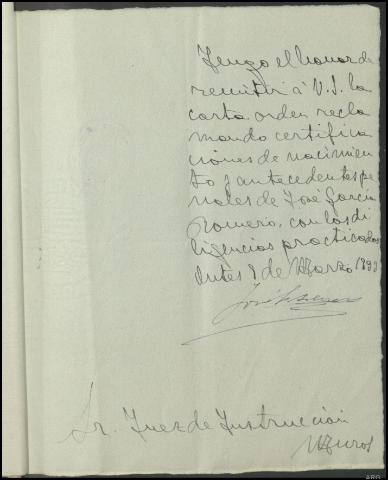 Tengo el honor de
remitir á V.S. la
carta orden recla
mando certifica
ciones de nacimien
to y antecedentes pe
nales de José García
Romero, con las di
ligencias practicadas
Outes 9 de Marzo 1892
José
Sr. Juez de Instrucción
Muros